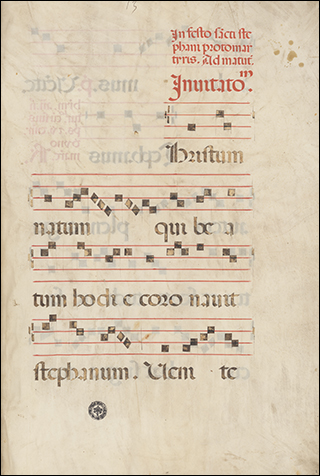 In festo sācti ste
phani protomar
tyris. Ad matut̄.
Inuitato^m.
hristum
natum qui be a
tum hodi e coro nauit
stephanum. Ueni te